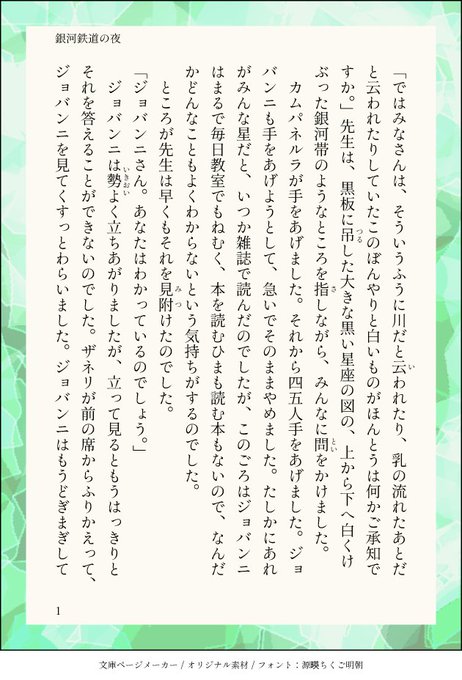 銀河鉄道の夜
「ではみなさんは、そういうふうに川だと云われたり、乳の流れたあとだ
と云われたりしていたこのぼんやりと白いものがほんとうは何かご承知で
すか。」先生は、黒板に吊した大きな黒い星座の図の、上から下へ白くけ
ぶった銀河帯のようなところを指しながら、みんなに問をかけました。
カムパネルラが手をあげました。それから四五人手をあげました。ジョ
バンニも手をあげようとして、急いでそのままやめました。たしかにあれ
がみんな星だと、いつか雑誌で読んだのでしたが、このごろはジョバンニ
はまるで毎日教室でもねむく、本を読むひまも読む本もないので、なんだ
かどんなこともよくわからないという気持ちがするのでした。
ところが先生は早くもそれを見附けたのでした。
「ジョバンニさん。あなたはわかっているのでしょう。」
ジョバンニは勢よく立ちあがりましたが、立って見るともうはっきりと
それを答えることができないのでした。ザネリが前の席からふりかえって、
ジョバンニを見てくすっとわらいました。ジョバンニはもうどぎまぎして
1
文庫ページメーカー / オリジナル素材 / フォント：源暎ちくご明朝